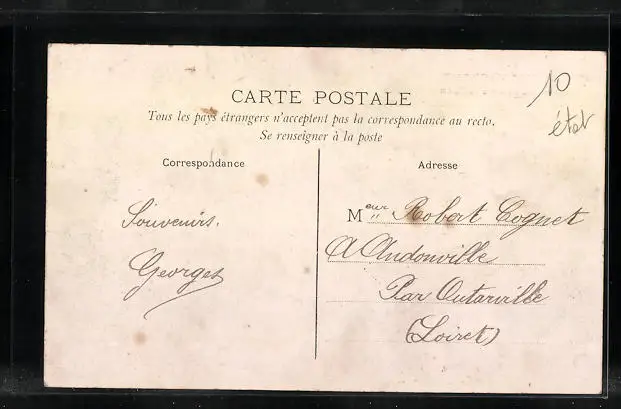 10
état
CARTE POSTALE
Tous les pays étrangers n'acceptent pas la correspondance au recto.
Se renseigner à la poste
Correspondance
Adresse
Souvenirs.
Georges
Meur Robert Cognet
A Andonville
Par Outarville
(Loiret)